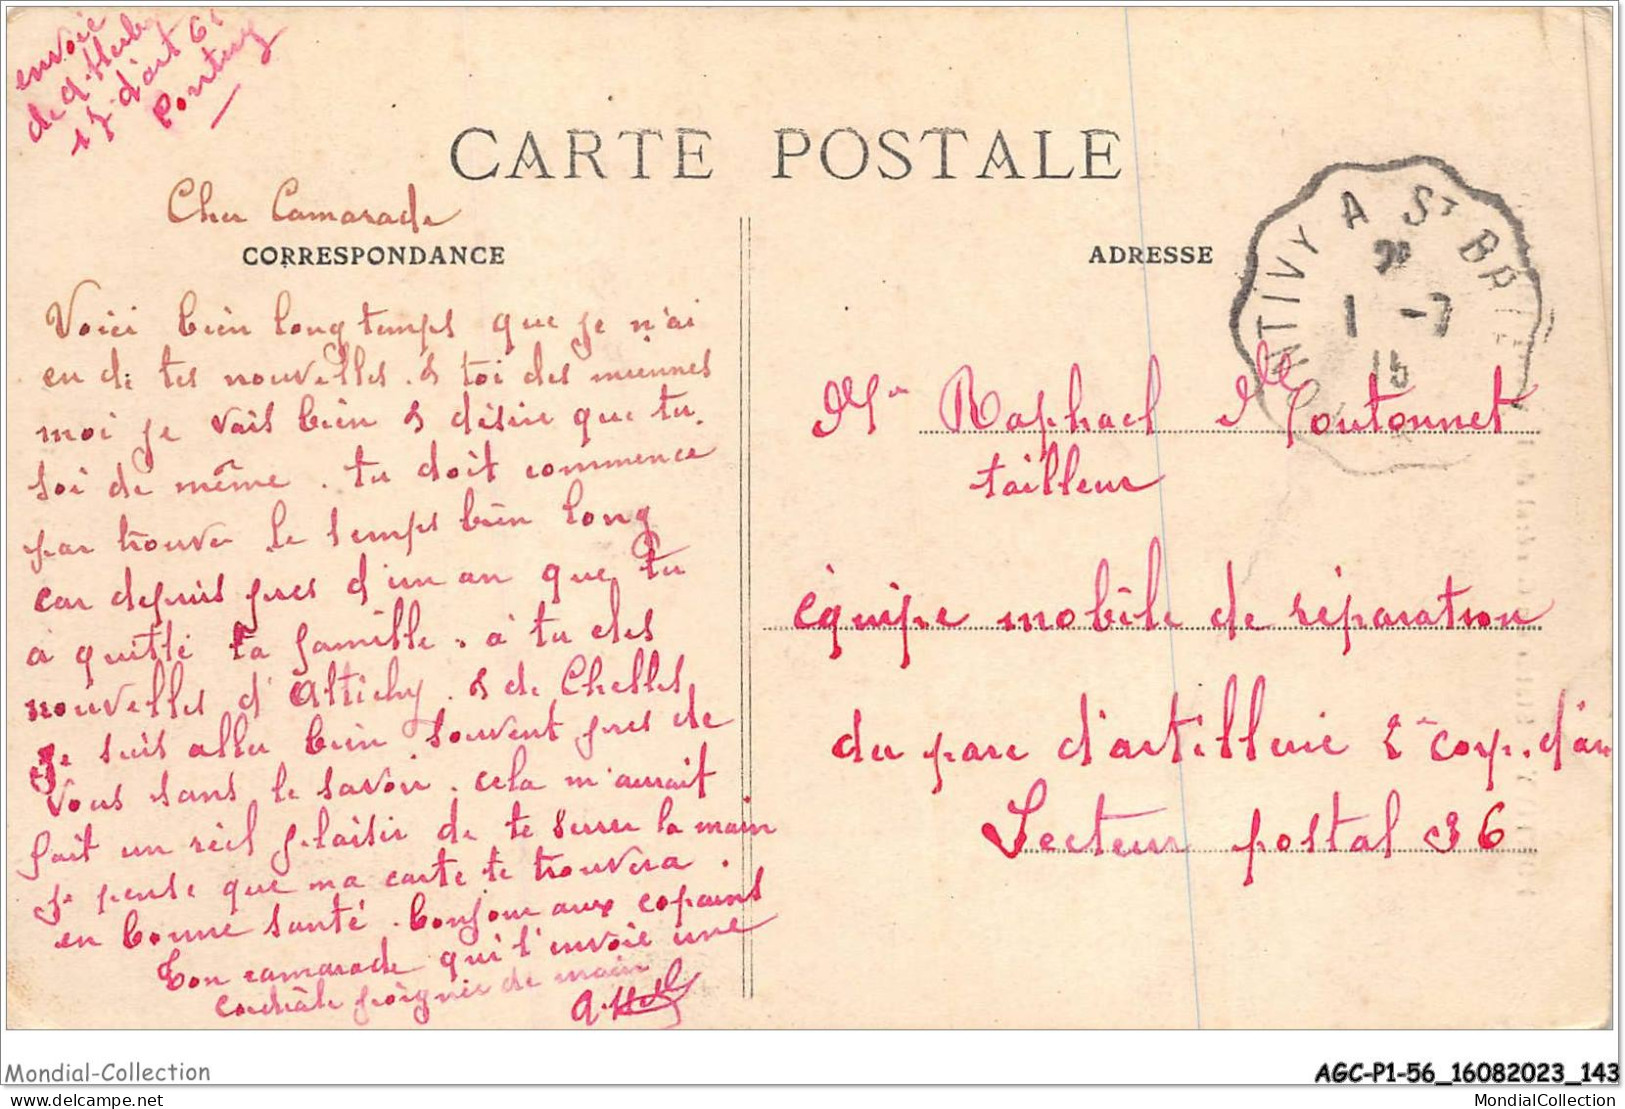 envoie
de
d'art
CARTE POSTALE
Cher Camarade
CORRESPONDANCE
Voici bien longtemps que je n'ai
eu de tes nouvelles. & toi des miennes
moi je vais bien & désire que tu
soi de même. tu doit commence
par trouver le temps bien long
car depuis pres d'un an que tu
a quitté ta famille. a tu des
nouvelles d'Attichy. & de Chelles
je suis aller bien souvent pres de
vous sans le savoir. cela m'aurait
fait un réel plaisir de te serrer la main
je pense que ma carte te trouvera.
en bonne santé. bonjour aux copains
Ton camarade qui t'envoie une
cordiale poignée de main
ADRESSE
PONTIVY A ST BRIEUC
1 -7
15
Mr Raphael Moutonnet
tailleur
équipe mobile de réparation
du parc d'artillerie 2e corp. d'ar
Secteur postal 36
Mondial-Collection
AGC-P1-56_16082023_143
delcampe.net
MondialCollection